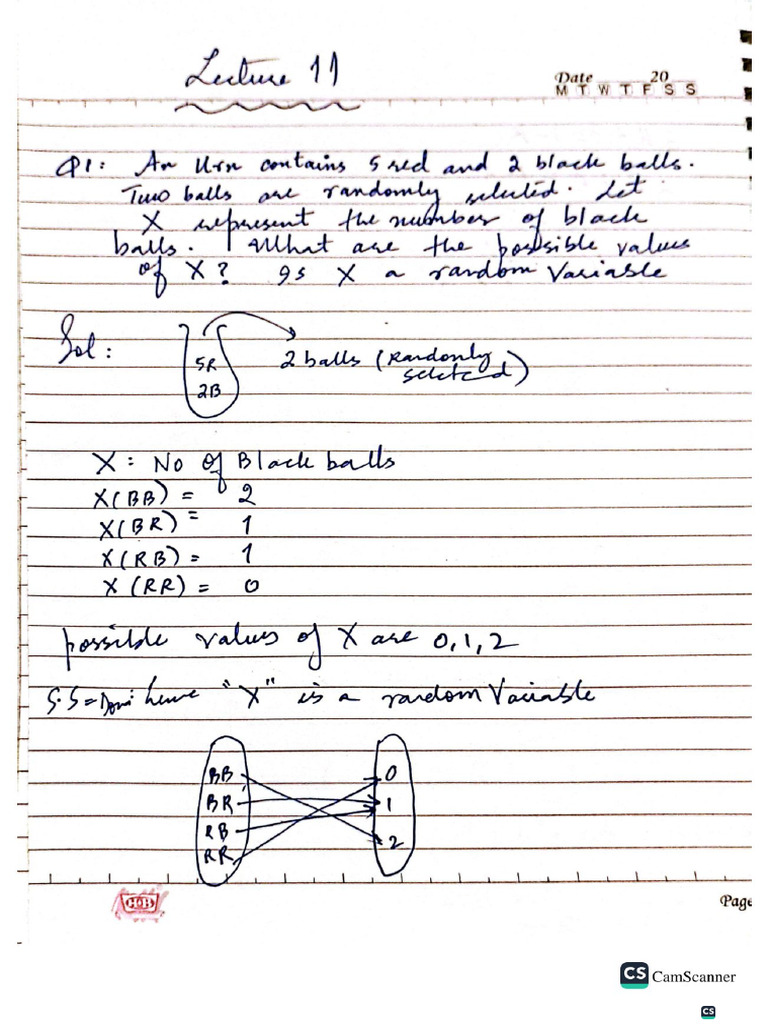 Lecture 11
Date 20
M T W T F S S
Q1: An Urn contains 5 red and 2 black balls.
Two balls are randomly selected. Let
X represent the number of black
balls. What are the possible values
of X? Is X a random Variable
Sol:
5R
2B
2 balls (Randonly
seleted)
X: No of Black balls
X(BB) = 2
X(BR) = 1
X(RB) = 1
X(RR) = 0
possible values of X are 0,1,2
S.S = Domi hence "X" is a random Variable
BB 0
BR 1
RB 2
RR
HB
Page
CS CamScanner
CS